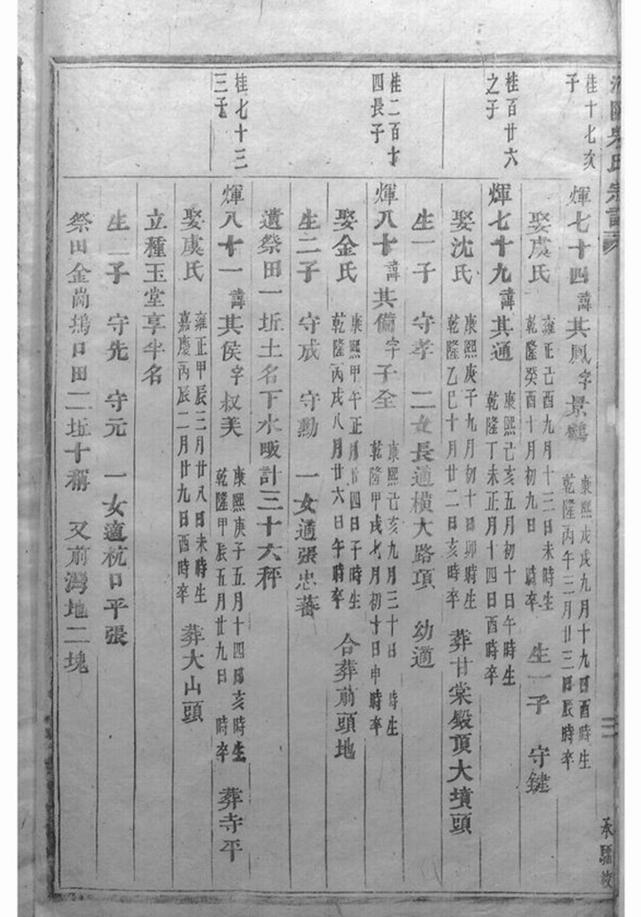 氏宗譜
承驥校
桂十七次子
輝七十四諱其鳳字景鶴 康熙戊戌九月十九日酉時生 乾隆丙午三月廿三日辰時卒
娶虞氏 雍正己酉九月十三日未時生 乾隆癸酉十月初九日 時卒 生一子 守鍵
桂百廿六之子
輝七十九諱其通 康熙己亥五月初十日午時生 乾隆丁未正月十四日酉時卒
娶沈氏 康熙庚子九月初十日卯時生 乾隆乙巳十月廿二日亥時卒 葬甘棠殿頂大墳頭
生一子 守孝 二女長適橫大路項 幼適
桂二百十四長子
輝八十諱其備字子全 康熙己亥九月三十日 時生 乾隆甲戌七月初十日申時卒
娶金氏 康熙甲午正月廿四日子時生 乾隆丙戌八月廿六日午時卒 合葬前頭地
生二子 守成 守勳 一女適張忠蕃
遺祭田一坵土名下水畈計三十六秤
桂七十三三子
輝八十一諱其侯字叔美 康熙庚子五月十四日亥時生 乾隆甲辰五月廿九日 時卒 葬寺平
娶虞氏 雍正甲辰三月廿八日未時生 嘉慶丙辰二月廿九日酉時卒 葬大山頭
立種玉堂享半名
生二子 守先 守元 一女適杭口平張
祭田金崗塢口田二坵十稱 又前灣地二塊